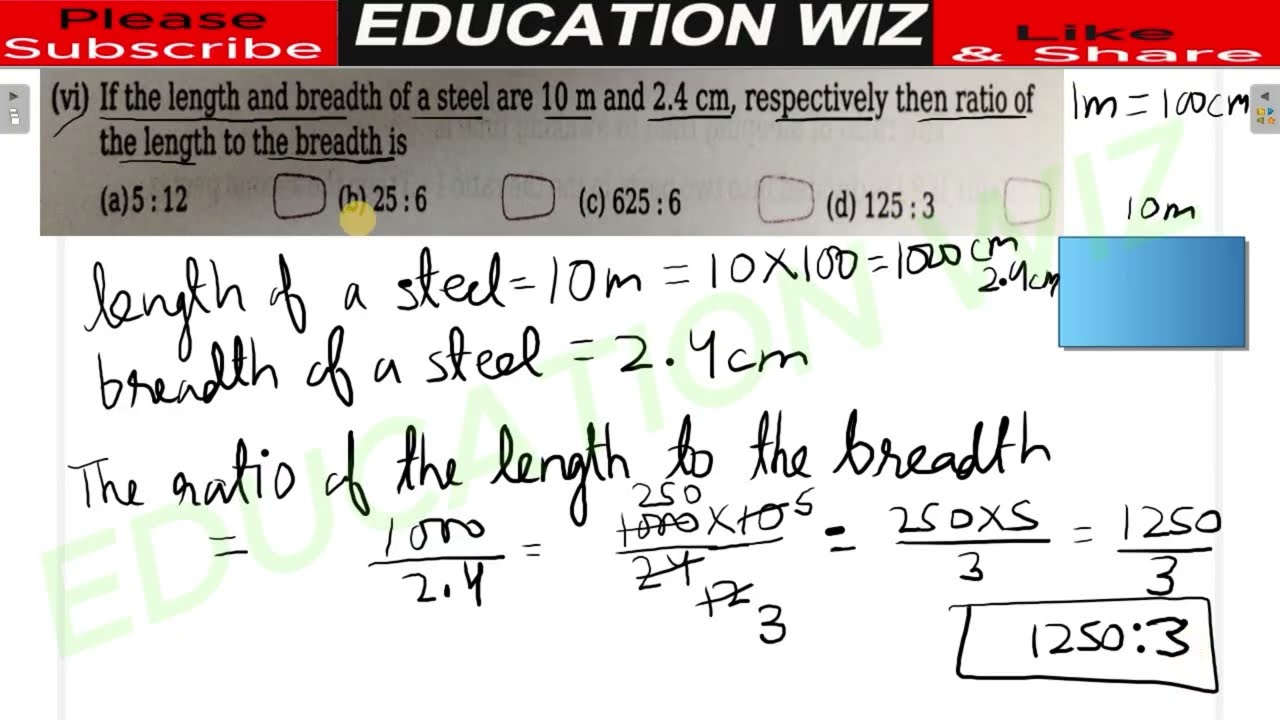 Please
Subscribe
EDUCATION WIZ
Like
& Share
(vi) If the length and breadth of a steel are 10 m and 2.4 cm, respectively then ratio of
the length to the breadth is
(a) 5 : 12 (b) 25 : 6 (c) 625 : 6 (d) 125 : 3
1m = 100cm
10m
2.4cm
length of a steel = 10m = 10×100 = 1000 cm
breadth of a steel = 2.4cm
The ratio of the length to the breadth
= 1000/2.4 = 1000×10/24 = 250×5/3 = 1250/3
250 5
12
3
1250:3
EDUCATION WIZ